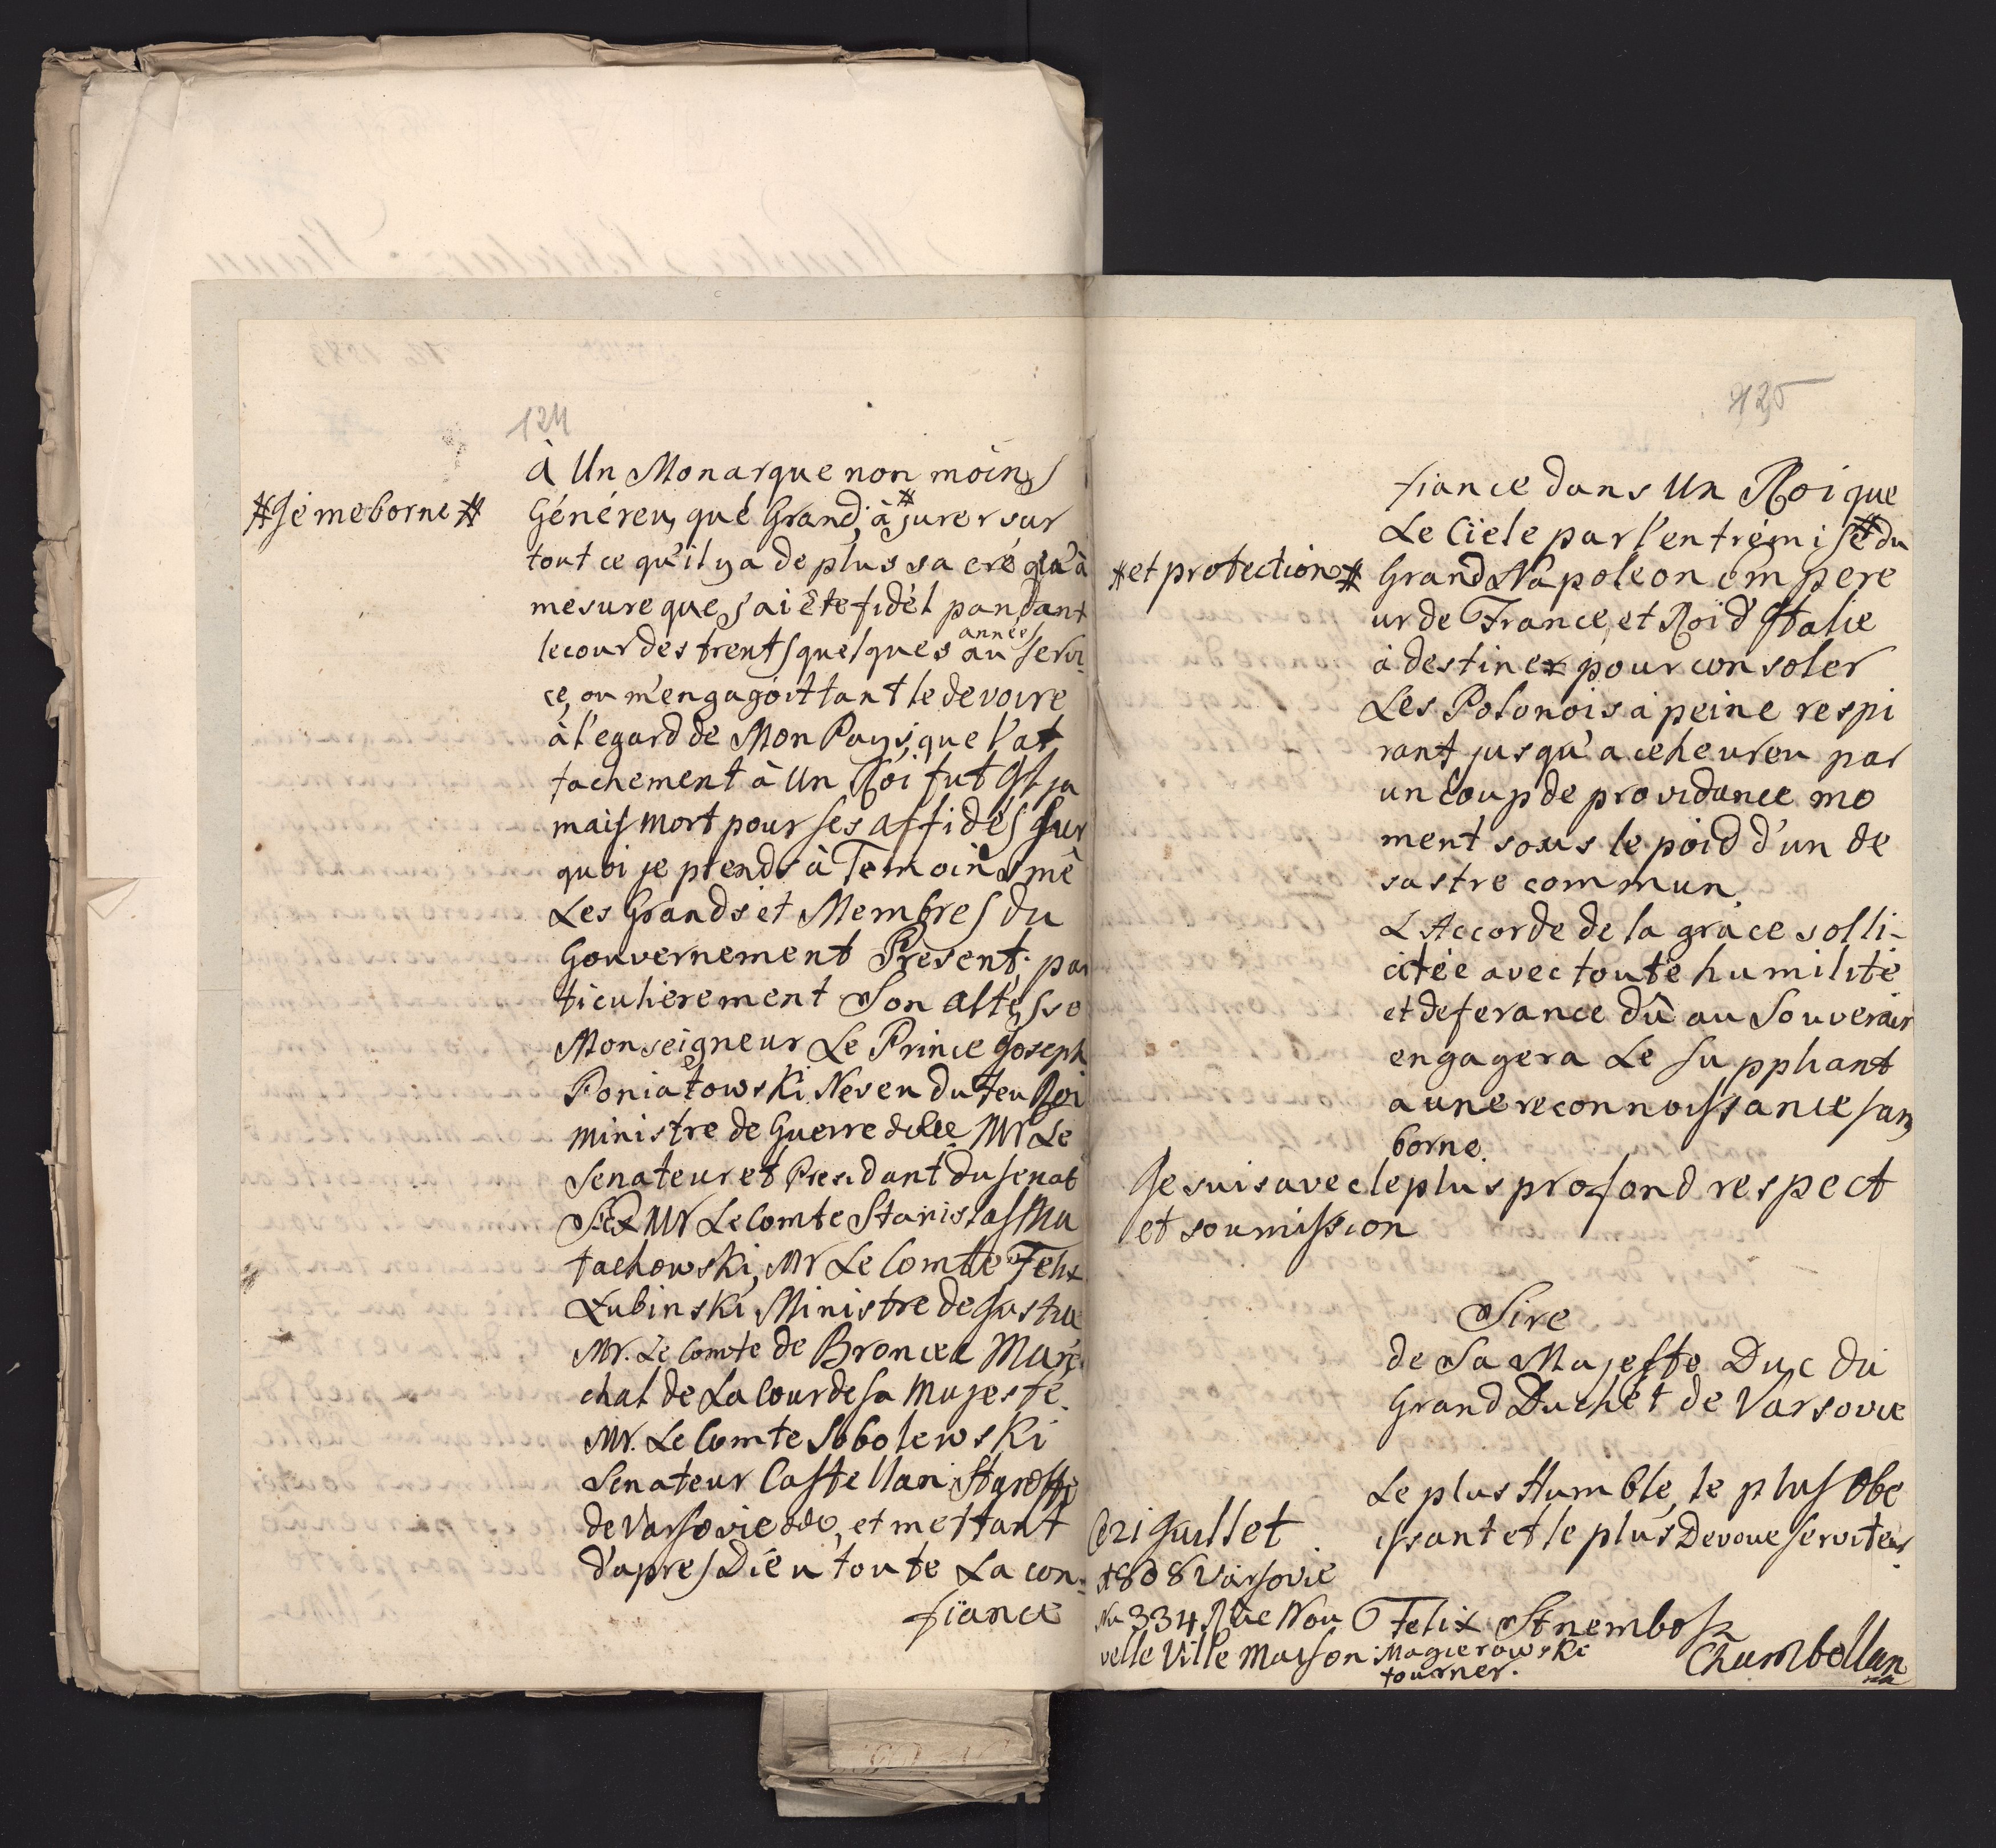 124
à Un Monarque non moins
#Je me borne#
Généreu, qué Grand, à # jurer sur
tout ce qu'il y a de plus sacré qu'à
mesure que j'ai été fidél pandant
le cour des trents quelques années au servi-
ce, ou m'engagoit tant le devoire
à l'egard de Mon Pays, que l'at
tachement à Un Roi fut Est ja
mais mort pour ses affidés sur
quoi je prends à Temoins mê
Les Grands et Membres du
Gouvernement Présent, par
ticulierement Son altesse
Monseigneur Le Prince Joseph
Poniatowski Neveu du feu Roi
ministre de Guerre Mr Le
Senateur et Presidant du senat
Mr Le Comte Stanislas Ma
tachowski, Mr Le Comte Felix
Lubinski Ministre de Justice
Mr. Le Comte de Bronice Maré-
chal de La Cour de sa Majesté.
Mr. Le Comte Sobolewski
Senateur Castellan
de Varsovie et mettant
d'apres Diéu toute La con-
fiance
125
fiance dans Un Roi que
Le Ciele par l'entrémise # du
#et protection#
Grand Napoleon empere
ur de France, et Roi d'Italie
à destiner pour consoler
Les Polonois à peine respi
rant jusqu'a ce heureu par
un coup de providance mo
ment sous le poid d'un de
sastre commun.
L'Accorde de la grâce solli-
citée avec toute humilité
et deferance dû au Souverain
engagera Le Suppliant
a une reconnoissance sans
borne.
Je suis avec le plus profond respect
et soumission
Sire
de Sa Majeste Duc du
Grand Duchét de Varsovie
Le plus Humble, le plus Obe
issant et le plus Devoue serviteur
Ce 21 Juillet
1808 Varsovie
Nu 334 Rue Nou
velle Ville Maison Magierowski
Felix Strembosz
Chambellan
tourner.